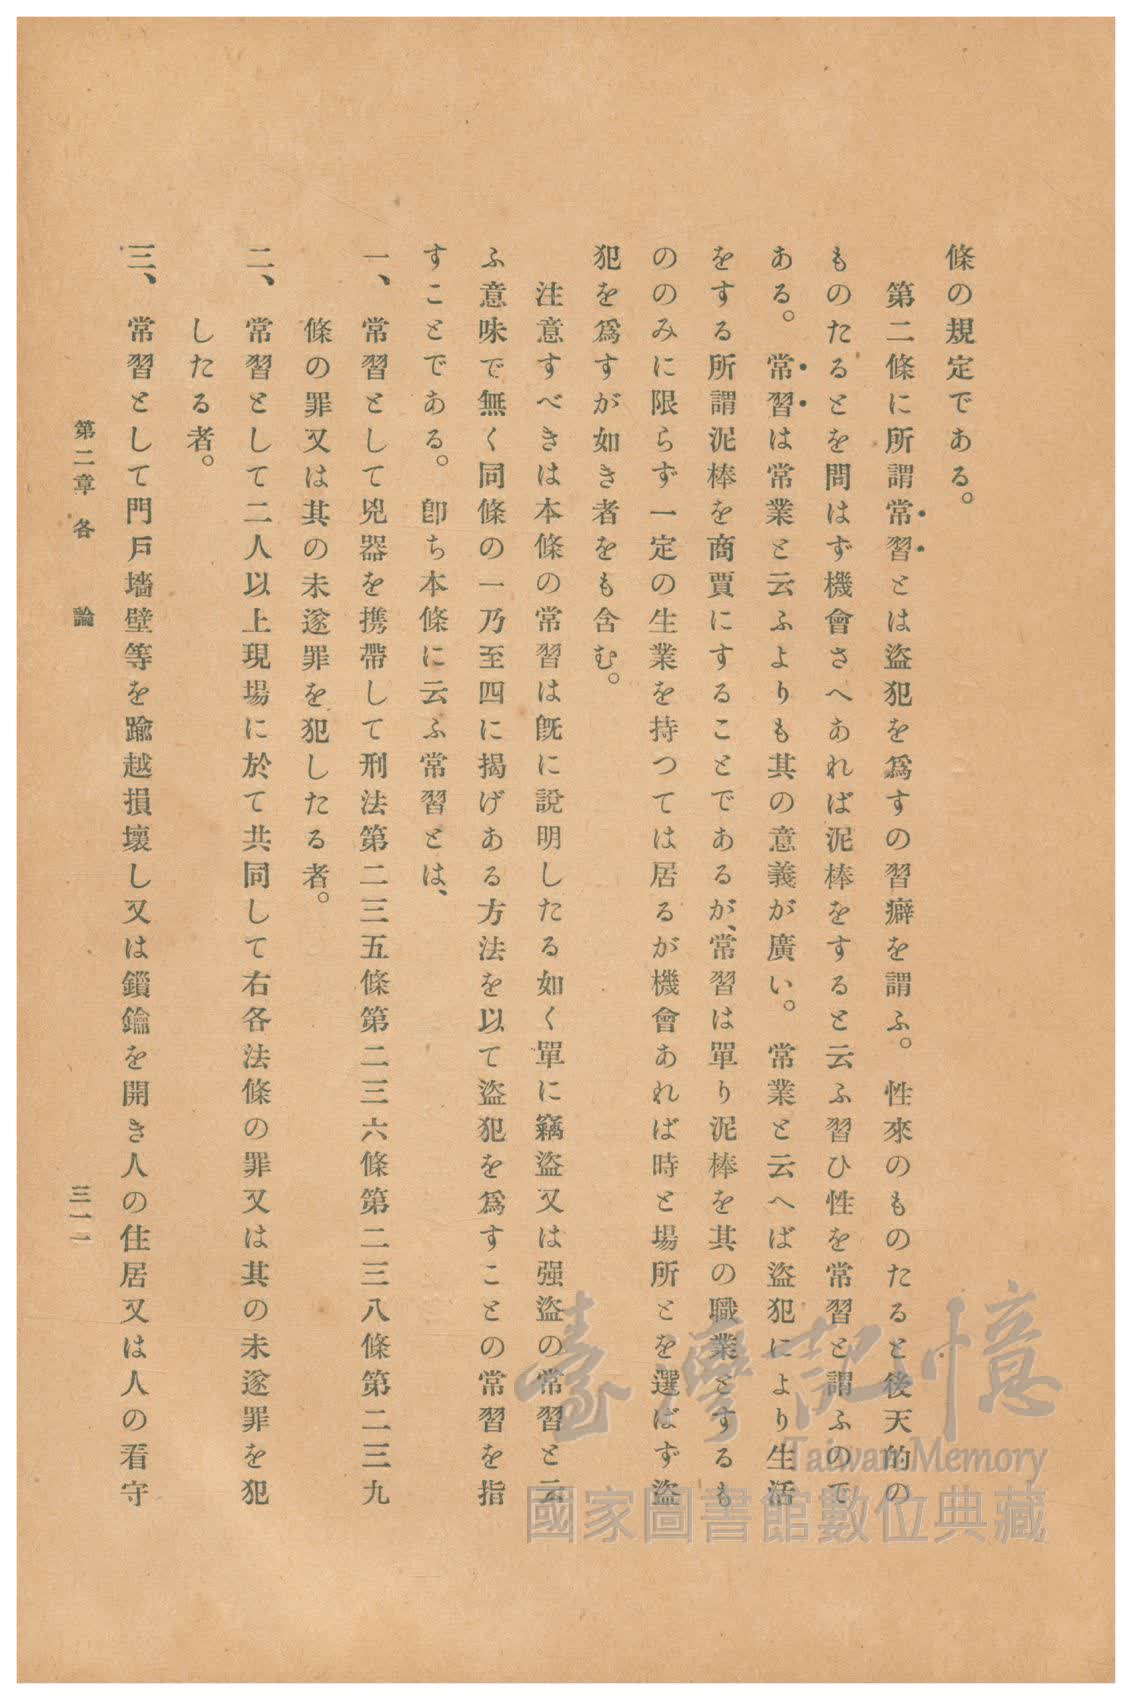 條の規定である。
第二條に所謂常習とは盜犯を爲すの習癖を謂ふ。性來のものたると後天的の
ものたるとを問はず機會さへあれば泥棒をすると云ふ習ひ性を常習と謂ふので
ある。常習は常業と云ふよりも其の意義が廣い。常業と云へば盜犯により生活
をする所謂泥棒を商賈にすることであるが、常習は單り泥棒を其の職業とするも
ののみに限らず一定の生業を持つては居るが機會あれば時と場所とを選ばず盜
犯を爲すが如き者をも含む。
注意すべきは本條の常習は旣に說明したる如く單に竊盜又は强盜の常習と云
ふ意味で無く同條の一乃至四に揭げある方法を以て盜犯を爲すことの常習を指
すことである。卽ち本條に云ふ常習とは、
一、常習として兇器を携帶して刑法第二三五條第二三六條第二三八條第二三九
條の罪又は其の未遂罪を犯したる者。
二、常習として二人以上現場に於て共同して右各法條の罪又は其の未遂罪を犯
したる者。
三、常習として門戶墻壁等を踰越損壞し又は鎖鑰を開き人の住居又は人の看守
第二章 各論
三一一
臺灣記憶
Taiwan Memory
國家圖書館數位典藏